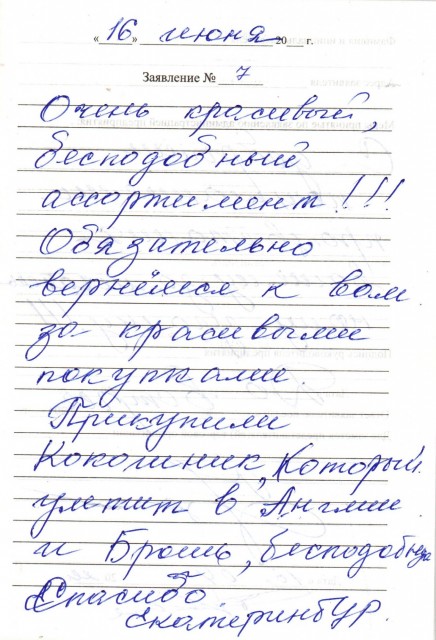 «16» июня 20 г.
Заявление № 7
Очень красивый,
бесподобный
ассортимент!!!
Обязательно
вернёмся к вам
за красивыми
покупками.
Прикупили
Кокошник, Который
улетит в Англии
и Брошь, бесподобную
Спасибо.
Екатеринбург.